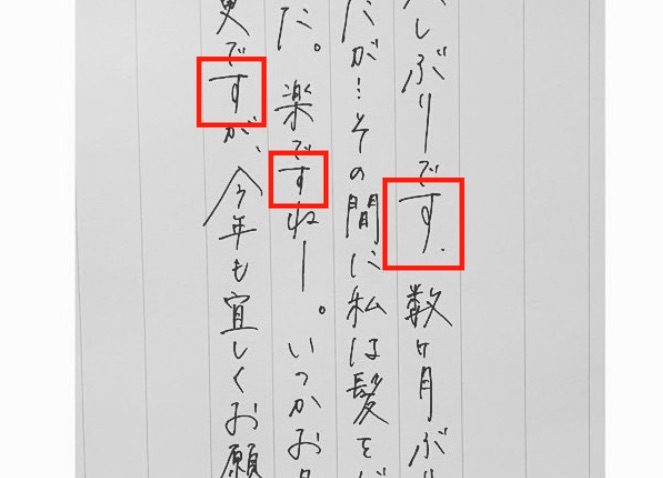 しぶりです. 数ヶ月ぶ
だが…その間に私は髪を
だ。楽ですねー。いつかお
更ですが、今年も宜しくお願